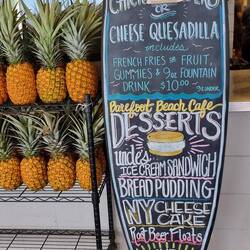 CHICKEN
OR
CHEESE QUESADILLA
includes
FRENCH FRIES OR FRUIT,
GUMMIES & 9oz FOUNTAIN
DRINK $10.00
Barefoot Beach Cafe
DESSERTS
ICE CREAM SANDWICH
BREAD PUDDING
NY CHEESE
CAKE
Root Beer Floats